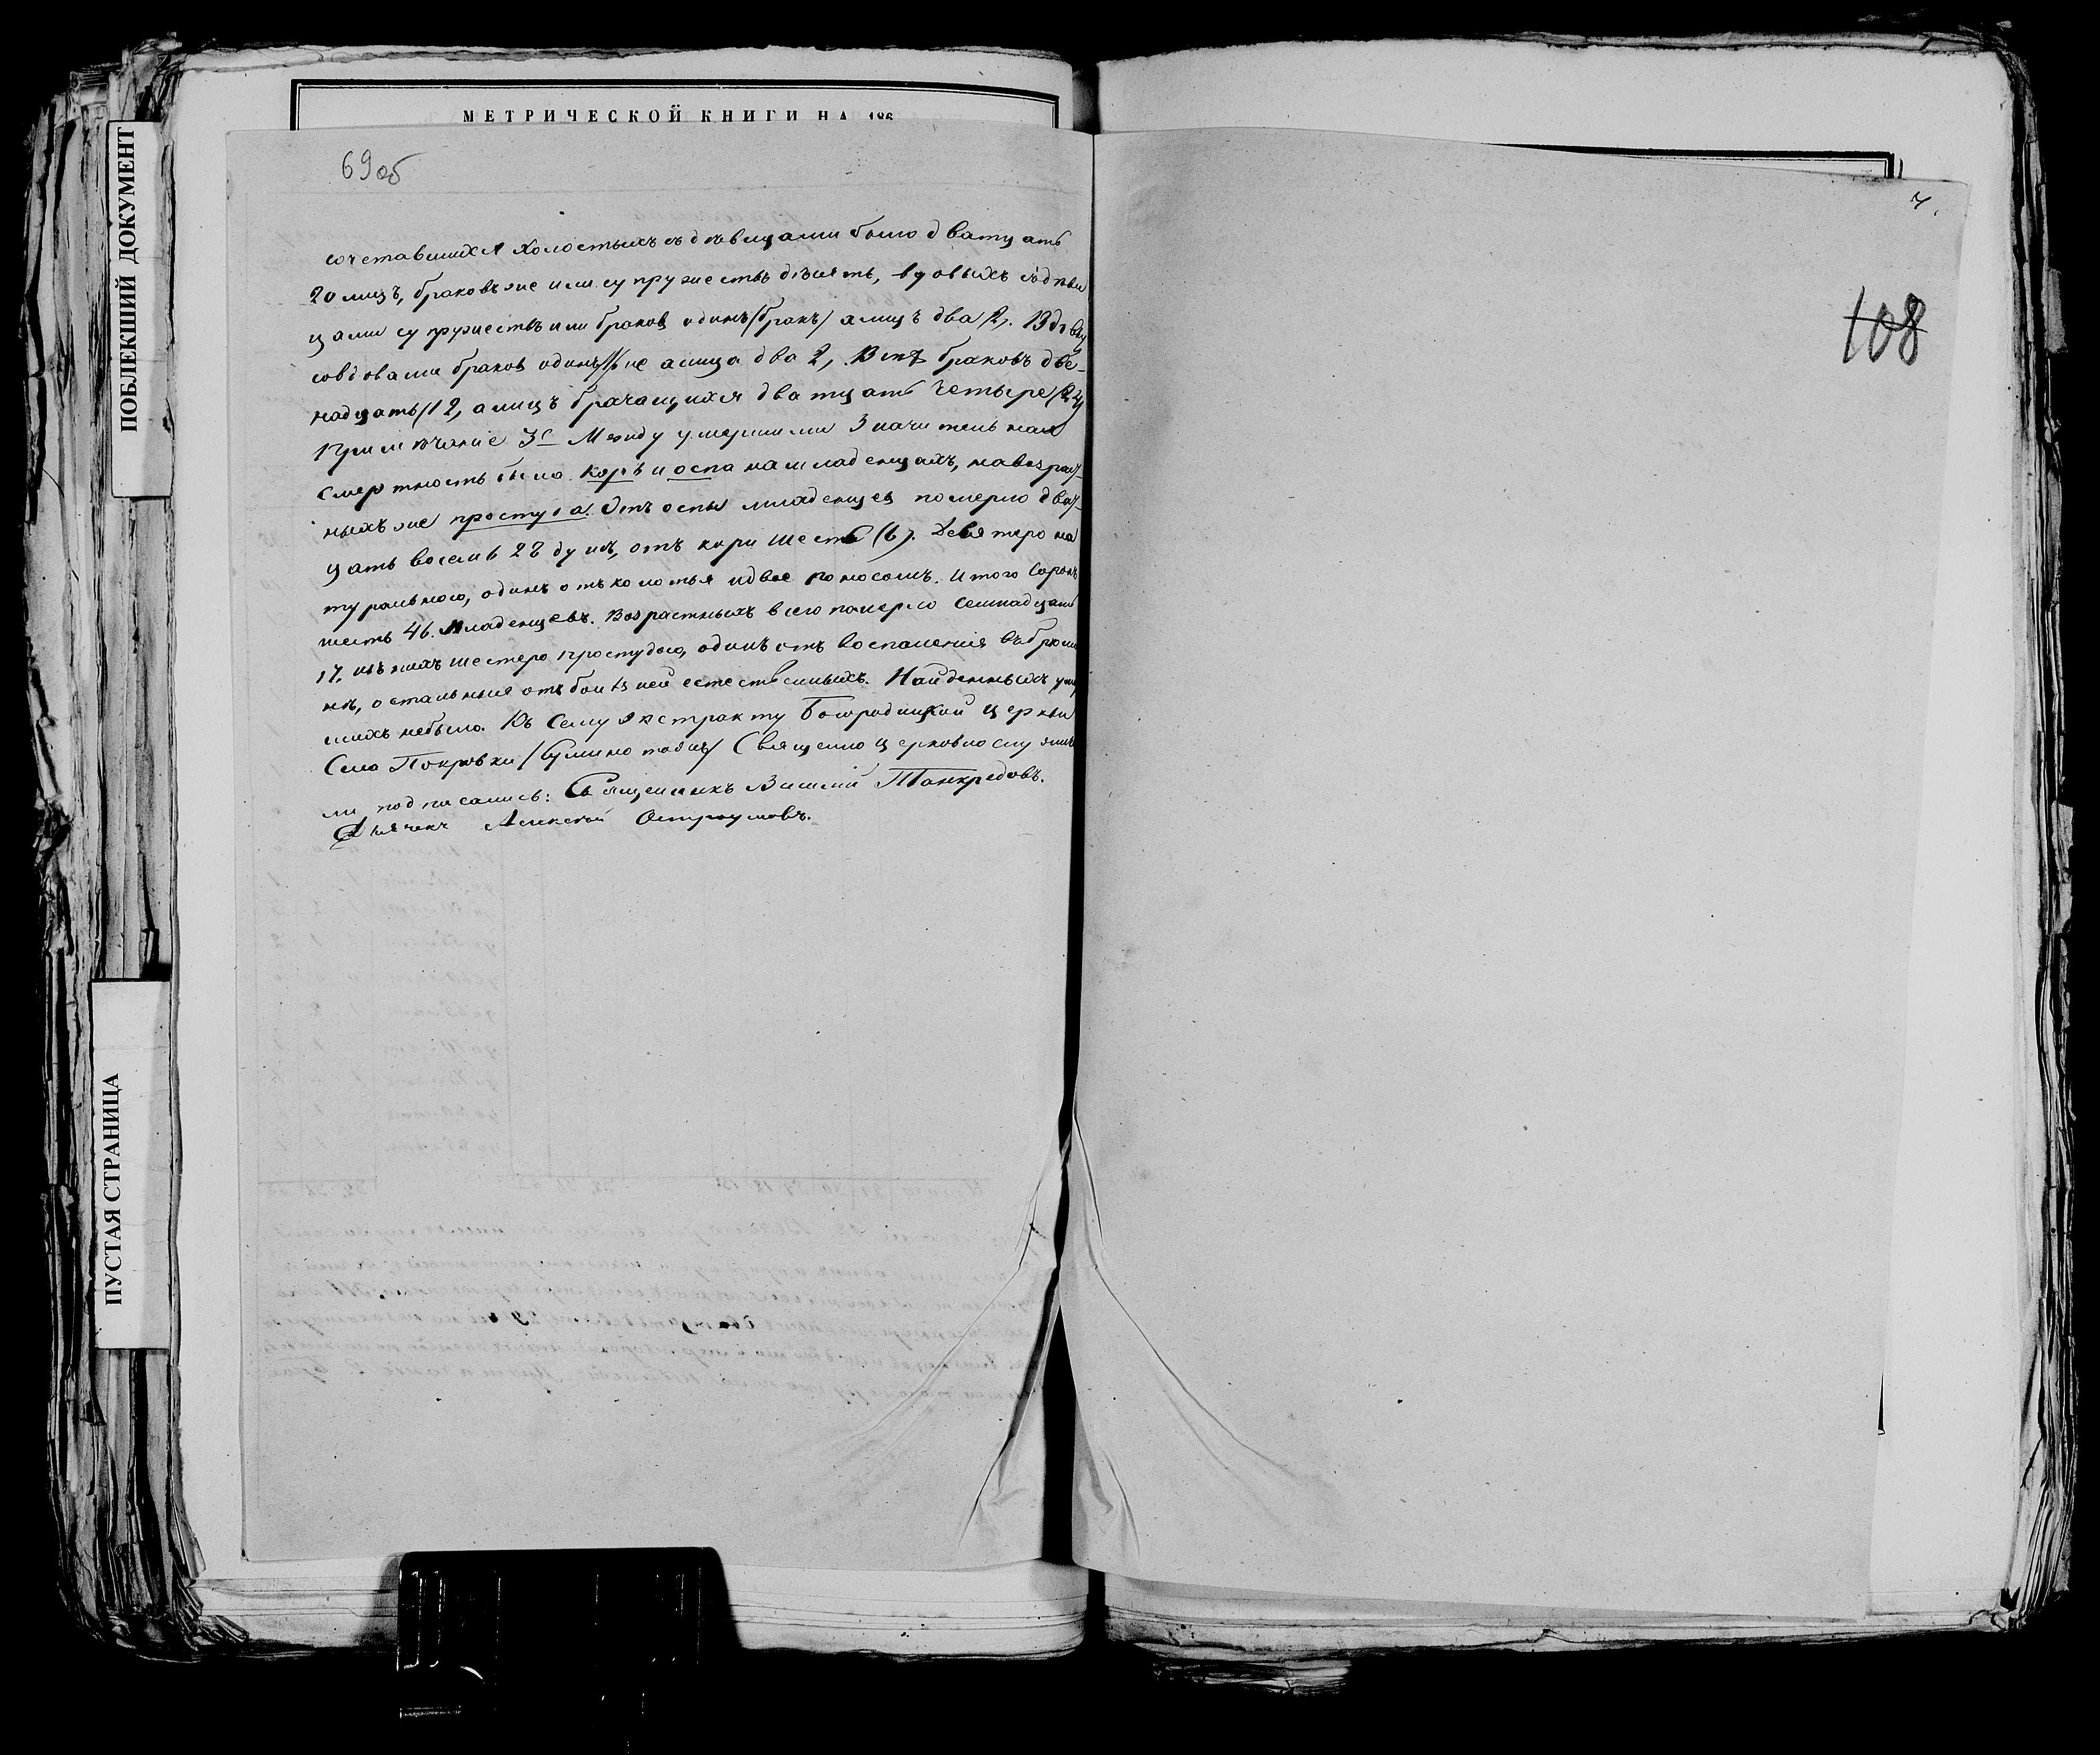 МЕТРИЧЕСКОЙ КНИГИ НА 186
69об
сочетавшихся холостыхъ съ дѣвицами было дватцать
20 лицъ, браковъ же или супружествъ дѣсять, вдовыхъ съ дѣви
цами супружествъ или браков одинъ/бракъ/ а лицъ два /2/. Вдовцу
со вдовами браков одинъ/1/ же а лица два 2, Всѣхъ браковъ две-
надцать/12, а лицъ брачащихся дватцать четыре/24/
Примѣчание 3е Между умершими значительная
смертность была корь и оспа на младенцахъ, на возраст-
ныхъ же простуда. Отъ оспы младенцев померло двat-
цать восемь 28 душъ, отъ кори шесть (6). Девятеро на
турально, одинъ отъ колотья и двое поносомъ. Итого сорокъ
шесть 46. Младенцевъ. Возрастныхъ всего померло семнадцать
17, изъ нихъ шестеро простудою, одинъ отъ воспаления въ брюш
нѣ, остальныя отъ болѣзней естественныхъ. Найденныхъ умер
шихъ небыло. Къ сему экстракту Богородицкой церкви
Села Покровки священно церковнослужите
ли подписались: Священникъ Василий Танкредовъ.
Дьячекъ Алексѣй Остроумовъ.
108
ПОБЛЕКШИЙ ДОКУМЕНТ
ПУСТАЯ СТРАНИЦА